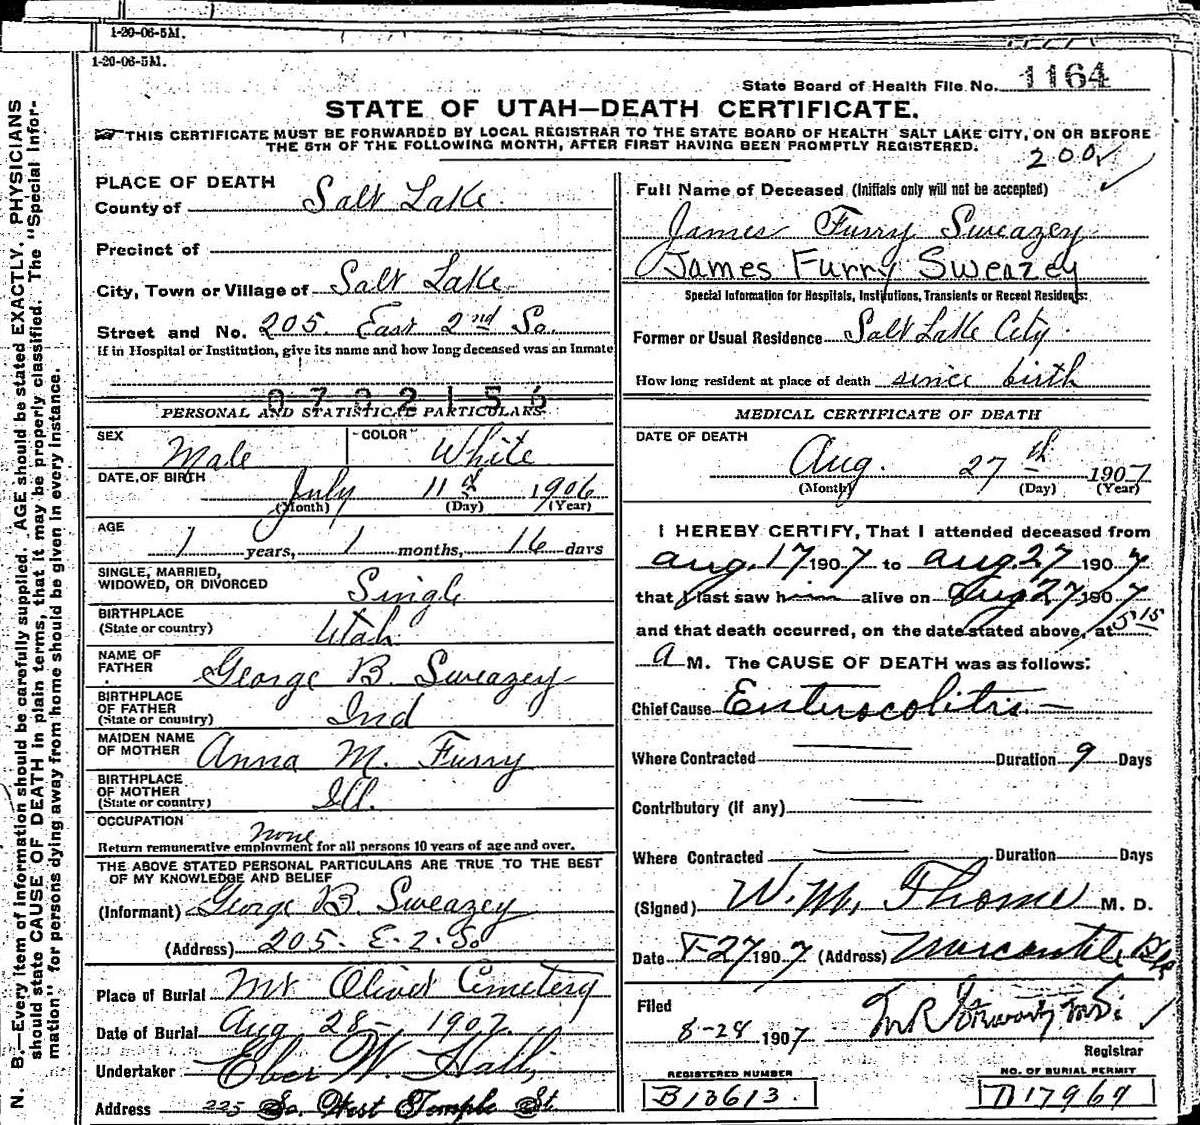 1-20-06-5M.
1-20-06-5M.
State Board of Health File No. 1164
STATE OF UTAH—DEATH CERTIFICATE.
THIS CERTIFICATE MUST BE FORWARDED BY LOCAL REGISTRAR TO THE STATE BOARD OF HEALTH SALT LAKE CITY, ON OR BEFORE
THE 5TH OF THE FOLLOWING MONTH, AFTER FIRST HAVING BEEN PROMPTLY REGISTERED.
200
N. B.—Every item of information should be carefully supplied. AGE should be stated EXACTLY. PHYSICIANS
should state CAUSE OF DEATH in plain terms, that it may be properly classified. The "Special Infor-
mation" for persons dying away from home should be given in every instance.
PLACE OF DEATH
County of Salt Lake
Precinct of
City, Town or Village of Salt Lake
Street and No. 205 East 2nd So.
If in Hospital or Institution, give its name and how long deceased was an Inmate
0702156
PERSONAL AND STATISTICAL PARTICULARS.
SEX Male COLOR White
DATE OF BIRTH July 11th 1906
(Month) (Day) (Year)
AGE
1 years, 1 months, 16 days
SINGLE, MARRIED,
WIDOWED, OR DIVORCED Single
BIRTHPLACE
(State or country) Utah
NAME OF
FATHER George B. Sweazey
BIRTHPLACE
OF FATHER
(State or country) Ind
MAIDEN NAME
OF MOTHER Anna M. Furry
BIRTHPLACE
OF MOTHER
(State or country) Ill.
OCCUPATION none
Return remunerative employment for all persons 10 years of age and over.
THE ABOVE STATED PERSONAL PARTICULARS ARE TRUE TO THE BEST
OF MY KNOWLEDGE AND BELIEF
(Informant) George B. Sweazey
(Address) 205 E. 2. So
Place of Burial Mt Olivet Cemetery
Date of Burial Aug 28— 1907.
Undertaker Eber W. Hall
Address 225 So. West Temple St
Full Name of Deceased (Initials only will not be accepted)
James Furry Sweazey
James Furry Sweazey
Special Information for Hospitals, Institutions, Transients or Recent Residents:
Former or Usual Residence Salt Lake City
How long resident at place of death since birth
MEDICAL CERTIFICATE OF DEATH
DATE OF DEATH
Aug. 27th 1907
(Month) (Day) (Year)
I HEREBY CERTIFY, That I attended deceased from
Aug. 17 1907 to Aug. 27 1907
that I last saw him alive on Aug 27 1907
and that death occurred, on the date stated above, at 5 15
a M. The CAUSE OF DEATH was as follows:
Chief Cause Enterocolitis—
Where Contracted Duration 9 Days
Contributory (if any)
Where Contracted Duration Days
(Signed) W. M. Thorne M. D.
Date 8-27 1907 (Address) Mercantile Blk
Filed
8-28 1907
Registrar
REGISTERED NUMBER
B13613.
NO. OF BURIAL PERMIT
D17969